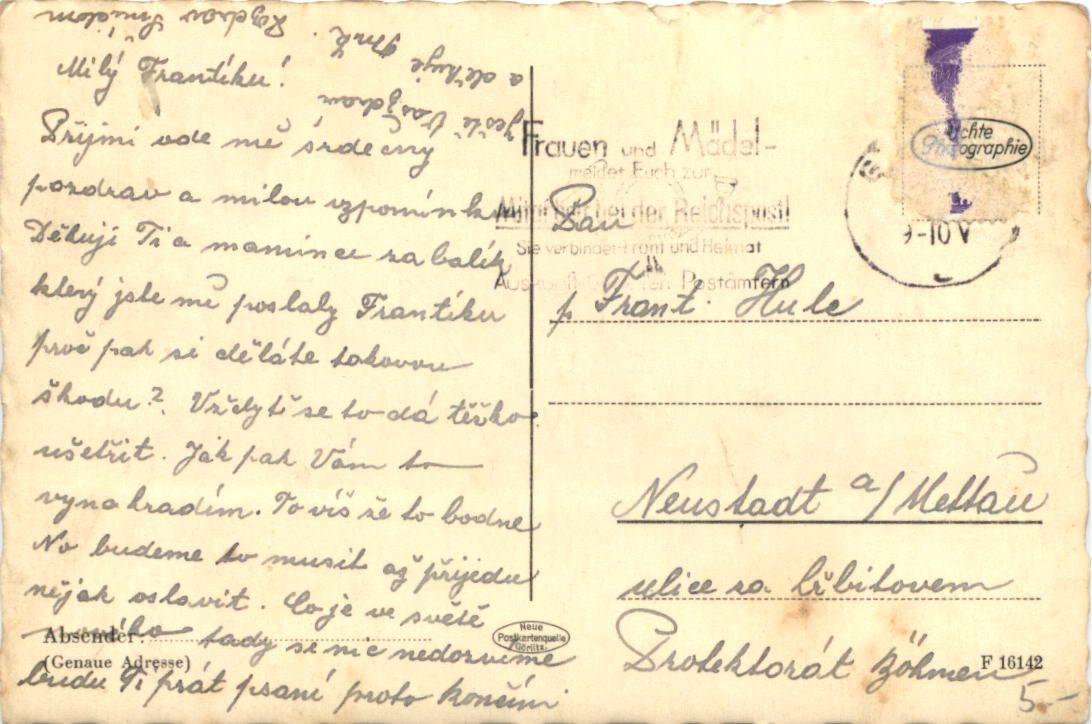 Milý Frantíku!
Přijmi ode mě srdečný
pozdrav a milou vzpomínku
Děkuji Ti a mamince za balík
který jste mě poslaly Frantíku
proč pak si děláte takovou
škodu? Vždyť se to dá těžko
ušetřit. Jak pak Vám to
vynahradím. To víš že to bodne
No budeme to musit až přijedu
nějak oslavit. Co je ve světě
tady se nic nedozvíme
budu Ti přát psaní proto končím
ještě Vás zdravím
a děkuji
Absender:
(Genaue Adresse)
Neue
Postkartenquelle
Görlitz.
Frauen und Mädel-
meldet Euch zur
Mitarbeit bei der Reichspost!
Sie verbindet Front und Heimat
Auskunft bei allen Postämtern
Echte
Photographie
9-10 V
Pan
p Frant. Hule
Neustadt a/Mettau
ulice za hřbitovem
Protektorát Böhmen
F 16142
5.-